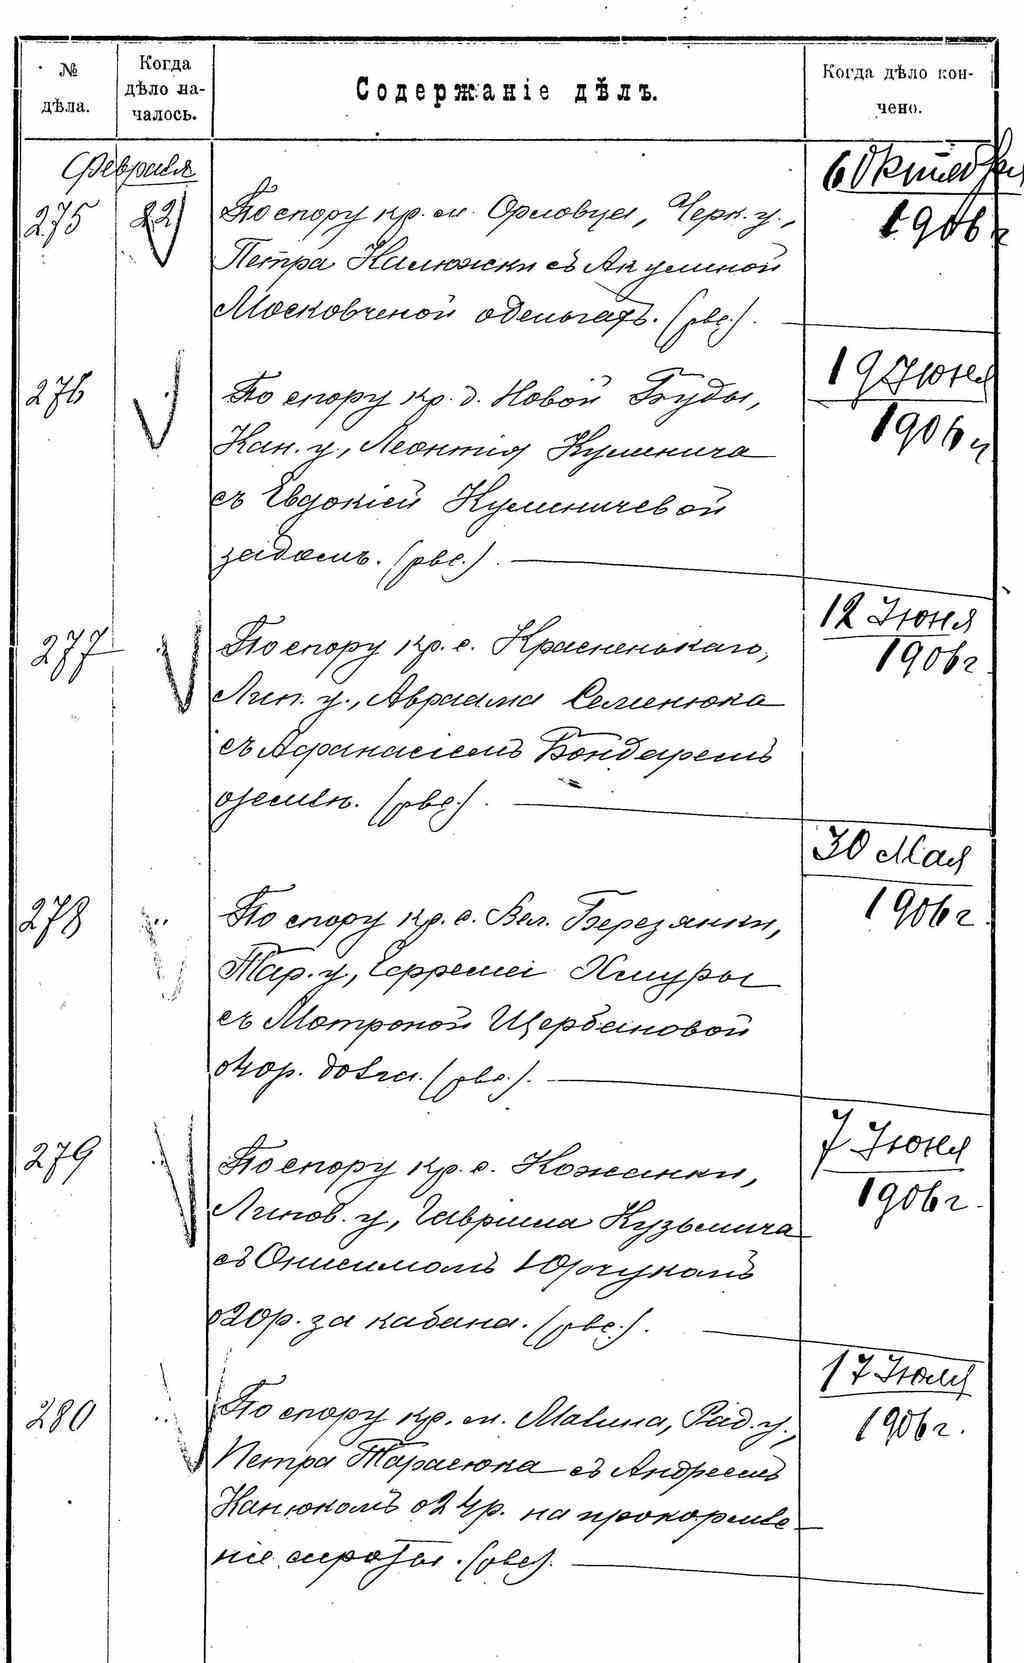 № дѣла.
Когда дѣло на-
чалось.
Содержаніе дѣлъ.
Когда дѣло кон-
чено.
Февраля
275 22 По спору кр. м. Орловца, Черк. у., 6 Октября
Петра Калюжки съ Акулиной 1906 г
Московченой о деньгахъ.
276 По спору кр. д. Новой Буды, 19 Іюня
Кан. у., Леонтія Кулинича 1906 г
съ Евдокіей Кулиничевой
277 По спору кр. с. Красненькаго, 12 Іюня
Лип. у., Авраама Семенюка 1906 г
съ Афанасіемъ Бондаремъ
о землѣ.
30 Мая
278 По спору кр. с. Вел. Березянки, 1906 г.
Тар. у., Ефрема Хмуры
съ Матроной Щербановой
долга.
279 По спору кр. с. Кожанки, 7 Іюня
Липов. у., Гавріила Кузьмича 1906 г.
съ Онисимомъ Юрчукомъ
о 20 р. за кабана.
17 Іюля
280 По спору кр. м. Малина, Рад. у., 1906 г.
Петра Тарасюка съ Андреемъ
Канюкомъ о 24 р. на прокормле-
ніе сироты.